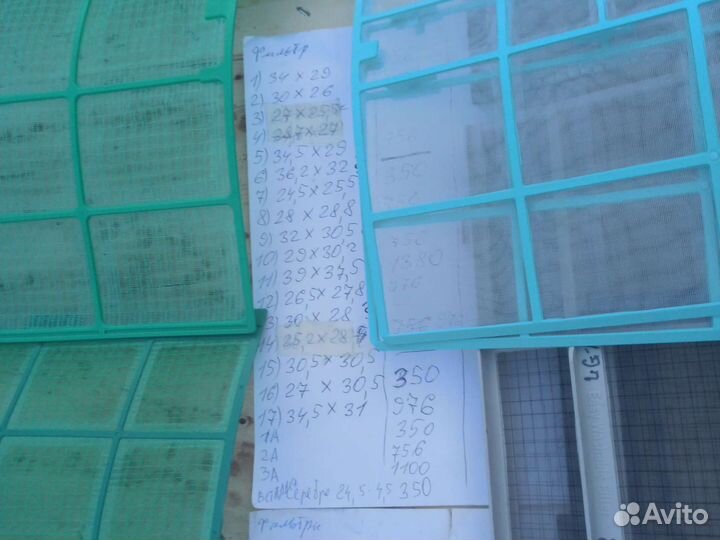 Фильтр
1) 34 x 29
2) 30 x 26
3) 27 x 25,5
4) 28,7 x 27
5) 34,5 x 29
6) 36,2 x 32
7) 24,5 x 25,5
8) 28 x 28,8
9) 32 x 30,5
10) 29 x 30,2
1380
11) 39 x 37,5
976
12) 26,5 x 27,8
3) 30 x 28
14) 25,2 x 28
15) 30,5 x 30,5
350
16) 27 x 30,5
976
17) 34,5 x 31
350
1А
756
2А
1100
3А
Серебро 24,5-4,5 350
Фильтры
Avito